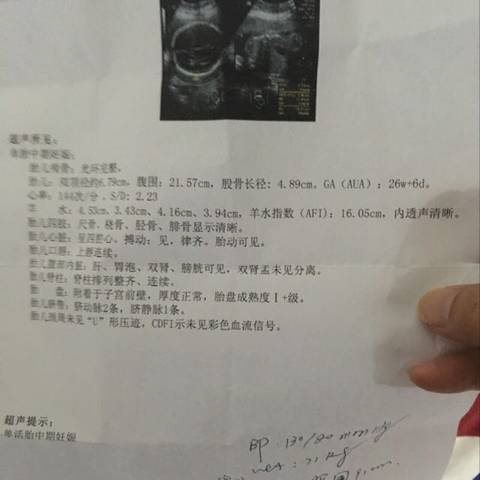 超声所见：
单胎中期妊娠：
胎儿颅骨：光环完整。
胎儿：双顶径约6.79cm，腹围：21.57cm，股骨长径：4.89cm。GA（AUA）：26w+6d。
心率：144次/分．S/D：2.23
羊　水：4.53cm、3.43cm、4.16cm、3.94cm，羊水指数（AFI）：16.05cm，内透声清晰。
胎儿四肢：尺骨、桡骨、胫骨、腓骨显示清晰。
胎儿心脏：呈四腔心，搏动：见，律齐。胎动可见。
胎儿口唇：上唇连续。
胎儿腹部内脏：肝、胃泡、双肾、膀胱可见，双肾盂未见分离。
胎儿脊柱：脊柱排列整齐、连续。
胎　盘：附着于子宫前壁，厚度正常，胎盘成熟度Ⅰ+级。
胎儿脐带：脐动脉2条，脐静脉1条。
胎儿颈周未见“U”形压迹，CDFI示未见彩色血流信号。
超声提示：
单活胎中期妊娠
BP：130/80 mmHg
71kg